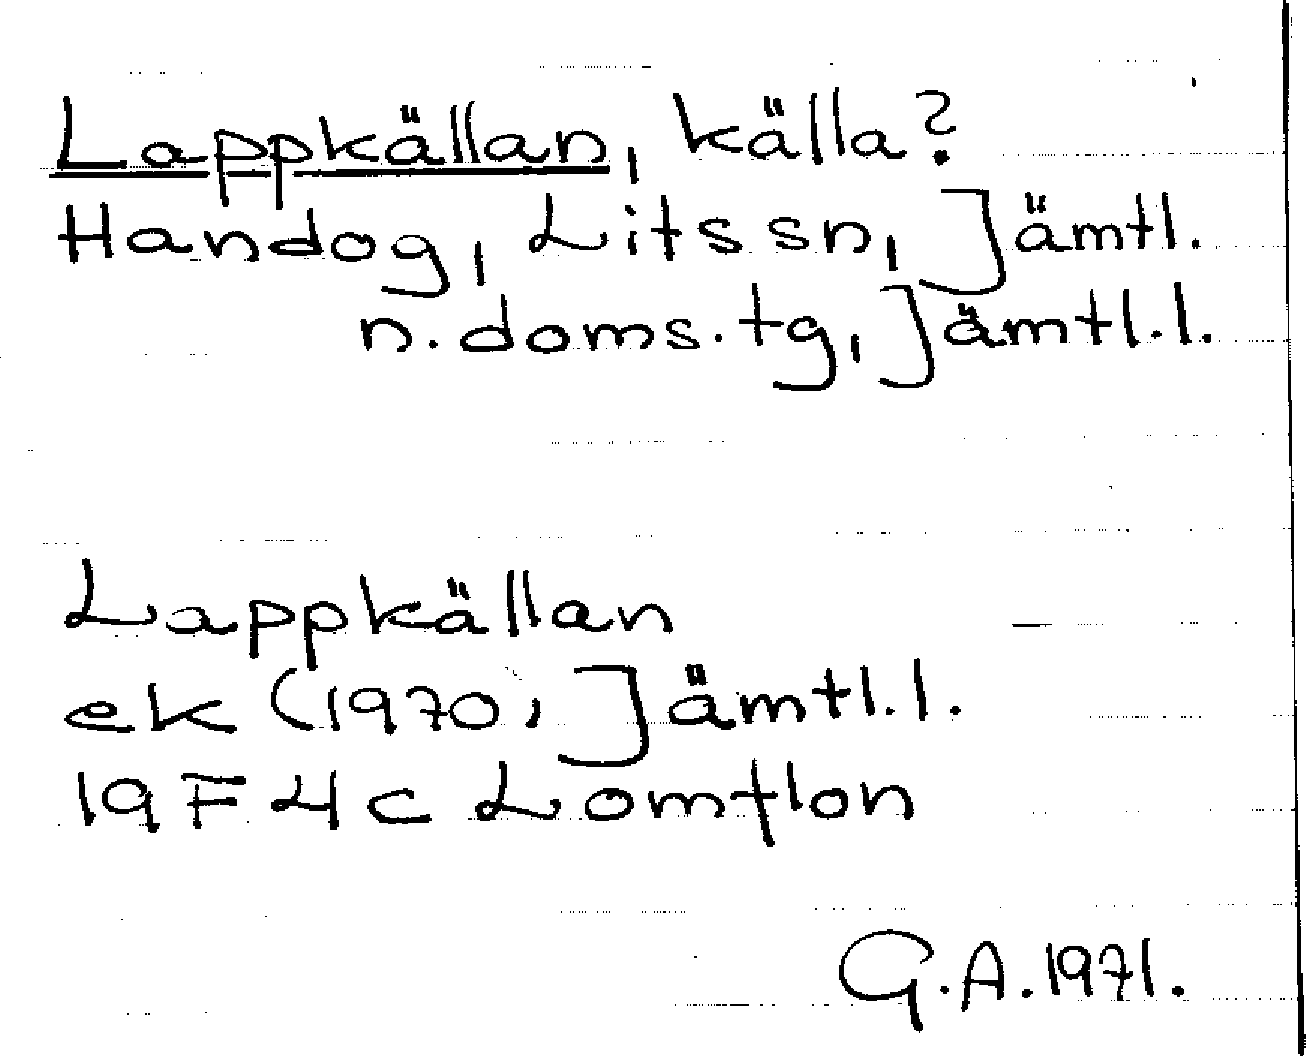 Lappkällan, källa?
Handog, Lits sn, Jämtl.
n. doms. tg, Jämtl. l.
Lappkällan
ek (1970, Jämtl. l.
19F4c Lomtlon
G.A. 1971.